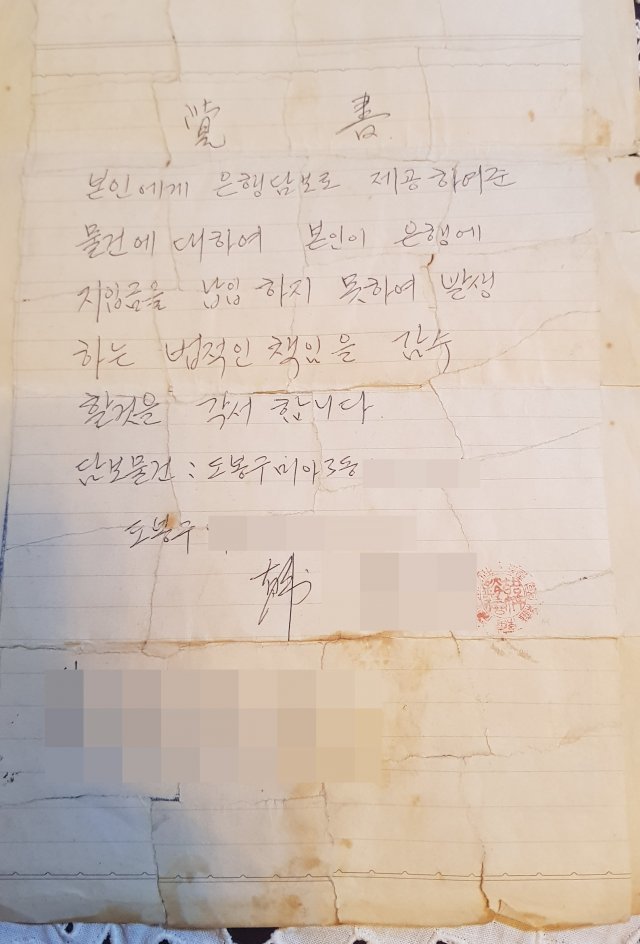 覚 書
본인에게 은행담보로 제공하여준
물건에 대하여 본인이 은행에
지입금을 납입 하지 못하여 발생
하는 법적인 책임을 감수
할것을 각서 합니다.
담보물건 : 도봉구미아3동
도봉구
韓